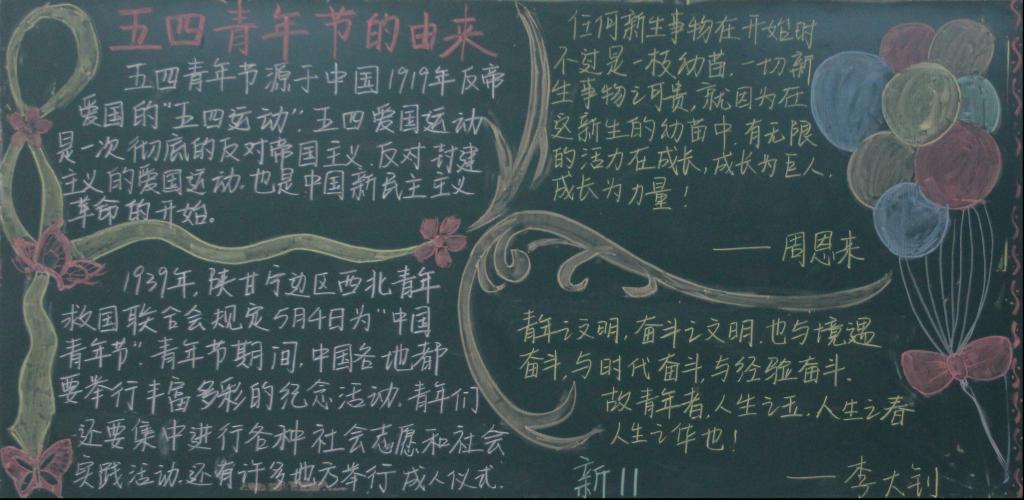 五四青年节的由来
五四青年节源于中国1919年反帝
爱国的"五四运动".五四爱国运动
是一次彻底的反对帝国主义.反对封建
主义的爱国运动.也是中国新民主主义
革命的开始。
1939年,陕甘宁边区西北青年
救国联合会规定5月4日为"中国
青年节".青年节期间,中国各地都
要举行丰富多彩的纪念活动.青年们
还要集中进行各种社会志愿和社会
实践活动.还有许多地方举行成人仪式.
任何新生事物在开始时
不过是一枝幼苗.一切新
生事物之可贵,就因为在
这新生的幼苗中,有无限
的活力在成长,成长为巨人.
成长为力量!
——周恩来
青年之文明,奋斗之文明.也与境遇
奋斗,与时代奋斗,与经验奋斗.
故青年者,人生之王.人生之春
人生之华也!
——李大钊
新11